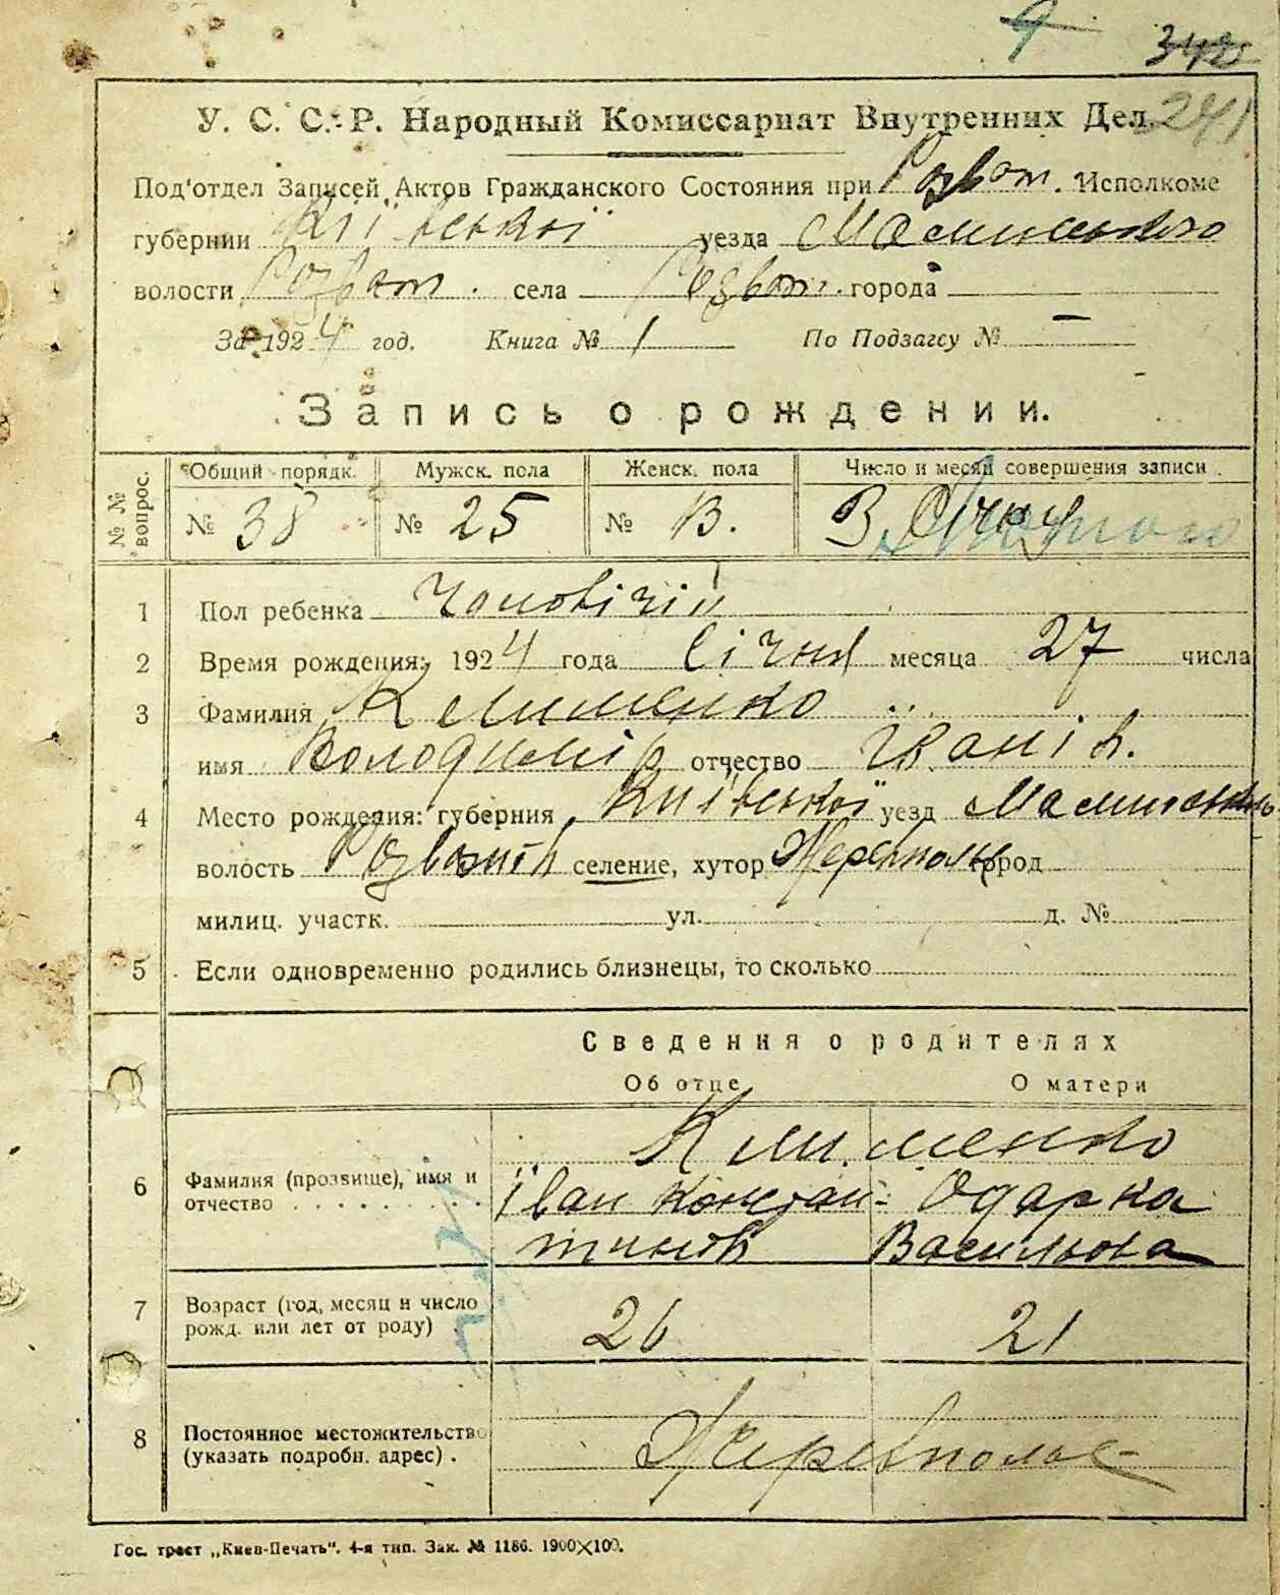 342
241
У. С. С. Р. Народный Комиссариат Внутренних Дел.
Под'отдел Записей Актов Гражданского Состояния при Розваж. Исполкоме
губернии Київської уезда
волости Розваж. села Розваж. города
За 1924 год. Книга № 1 По Подзагсу № —
Запись о рождении.
№ № вопрос.
Общий порядк. Мужск. пола Женск. пола Число и месяц совершения записи
№ 38 № 25 № 13. 3
1 Пол ребенка Чоловічий
2 Время рождения: 1924 года Січня месяца 27 числа
3 Фамилия Клименко
имя Володимір отчество Іванів.
4 Место рождения: губерния Київської уезд
волость селение, хутор город
милиц. участк. ул. д. №
5 Если одновременно родились близнецы, то сколько
Сведения о родителях
Об отце О матери
Клименко
6 Фамилия (прозвище), имя и отчество Іван Констан- Одарка
тинов Васильова
7 Возраст (год, месяц и число рожд. или лет от роду) 26 21
8 Постоянное местожительство (указать подробн. адрес).
Гос. трест „Киев-Печать". 4-я тип. Зак. № 1186. 1900×100.